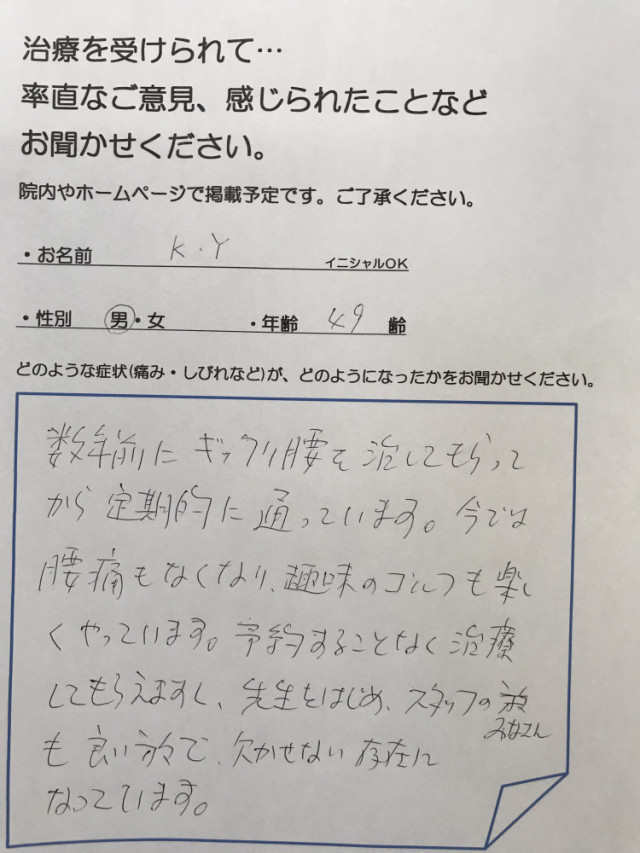 治療を受けられて…
率直なご意見、感じられたことなど
お聞かせください。
院内やホームページで掲載予定です。ご了承ください。
・お名前 K.Y イニシャルOK
・性別 男・女 ・年齢 49 齢
どのような症状(痛み・しびれなど)が、どのようになったかをお聞かせください。
数年前にギックリ腰を治してもらって
から定期的に通っています。今では
腰痛もなくなり、趣味のゴルフも楽し
くやっています。予約することなく治療
してもらえますし、先生をはじめ、スタッフの
みなさん
も良い方々で、欠かせない存在に
なっています。